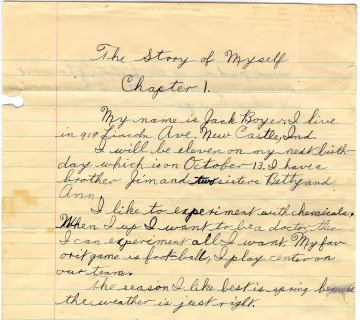 The Story of Myself
Chapter 1.
My name is Jack Boyer. I live
in 919 Lincoln Ave. New Castle, Ind.
I will be eleven on my next birth-
day which is on October 13. I have a
brother Jim and two sisters Betty and
Ann.
I like to experiment with chemicals.
When I up I want to be a doctor then
I can experiment all I want. My fav-
orit game is football, I play center on
our team.
The season I like best is spring because
the weather is just right.